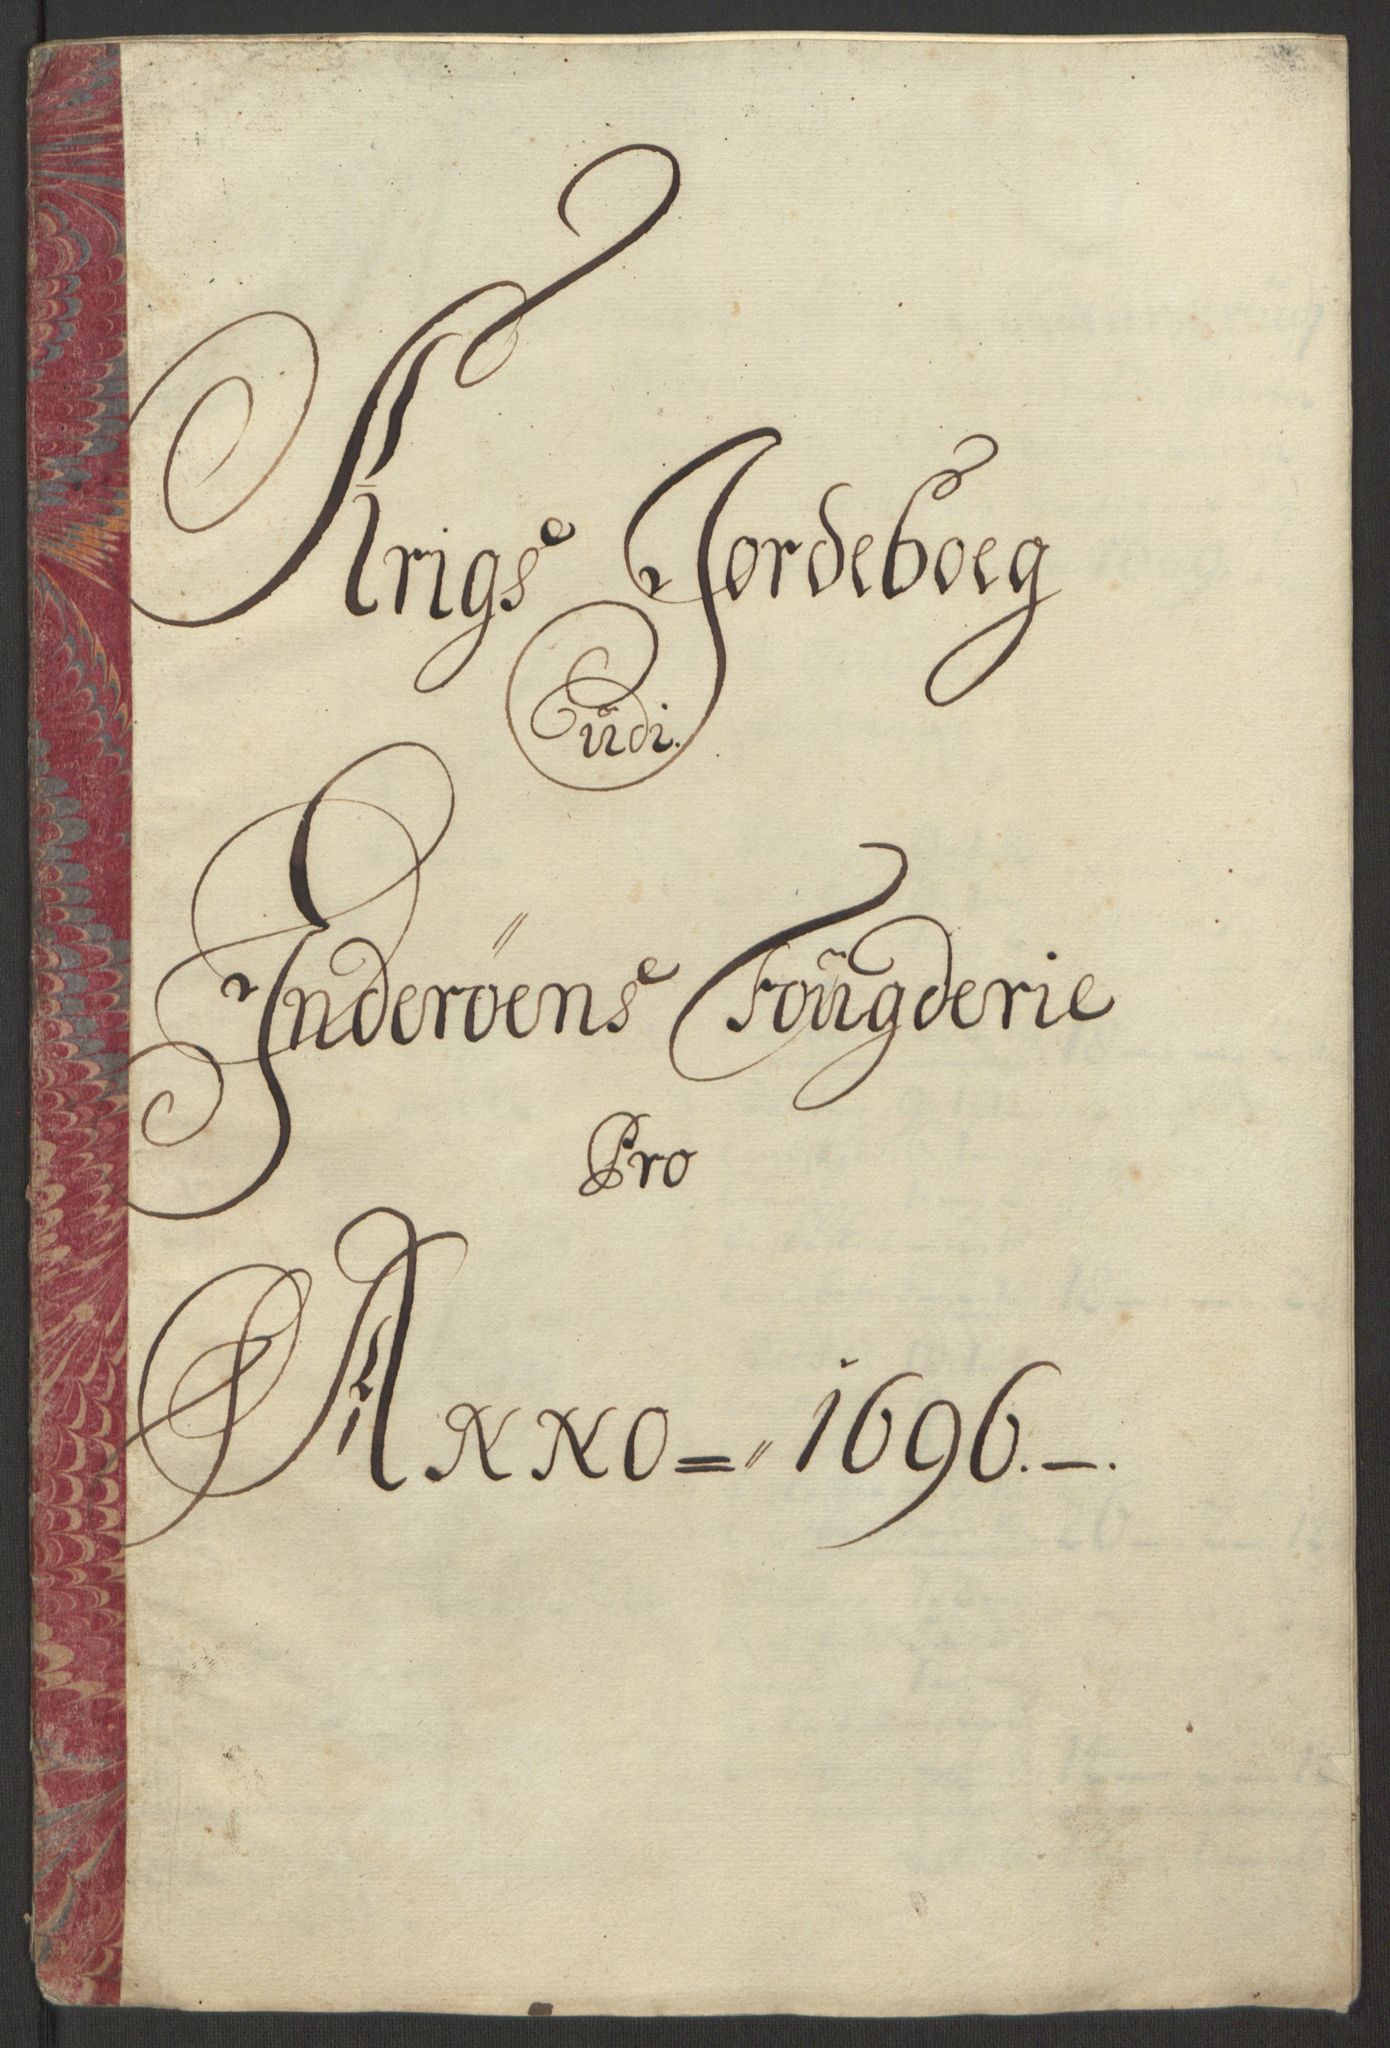 Krigs Jordeboeg
üdi.
Inderöens Foügderie
Pro
Anno = 1696. — .